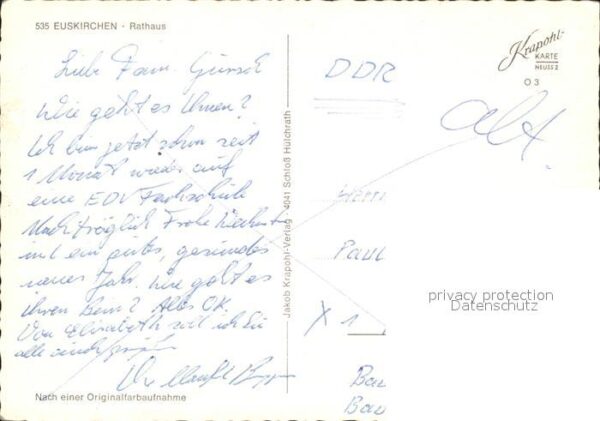 535 EUSKIRCHEN · Rathaus
Krapohl-
KARTE
NEUSS 2
O 3
Liebe Fam.
Wie geht es Ihnen?
Ich bin jetzt schon seit
1 Monat wieder auf
eine EDV Fachschule
Nachträglich Frohe Weihnachten
und ein gutes, gesundes
neues Jahr. Wie geht es
ihren Bein? Alles OK
Von Elisabeth soll ich Sie
alle
DDR
Herrn
Paul
X 1
Bau
Bau
Jakob Krapohl-Verlag · 4041 Schloß Hülchrath
privacy protection
Datenschutz
Nach einer Originalfarbaufnahme